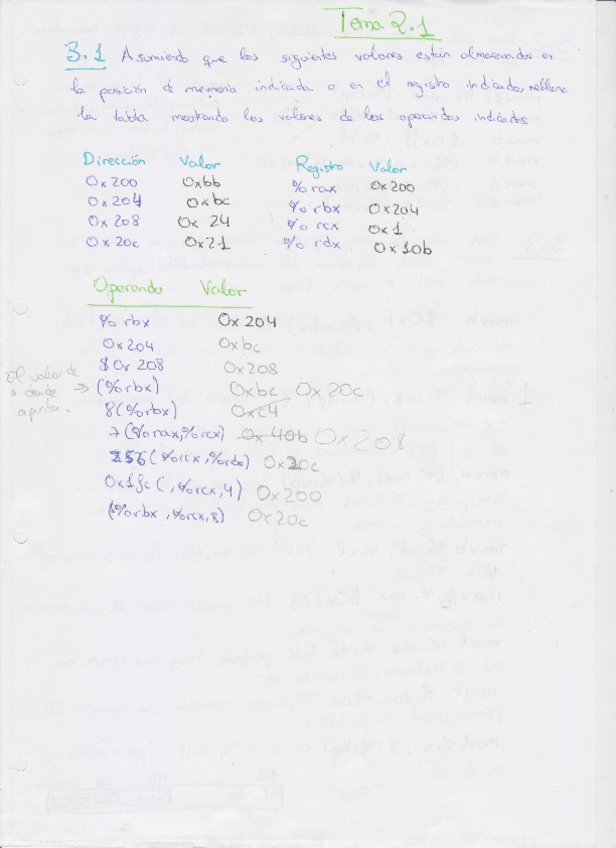 Tema 2.1
3.1 Asumiendo que los siguientes valores están almacenados en
la posición de memoria indicada o en el registro indicado, rellene
la tabla mostrando los valores de los operandos indicados
Dirección Valor Registro Valor
0x200 0xbb %rax 0x200
0x204 0xbc %rbx 0x204
0x208 0x24 %rcx 0x1
0x20c 0x21 %rdx 0x10b
Operando Valor
%rbx 0x204
0x204 0xbc
$0x208 0x208
El valor de a donde apunta. → (%rbx) 0xbc 0x20c
8(%rbx) 0xc4
7(%rax,%rcx) 0x40b 0x208
256(%rcx,%rdx) 0x20c
0x1fc(,%rcx,4) 0x200
(%rbx,%rcx,8) 0x20c